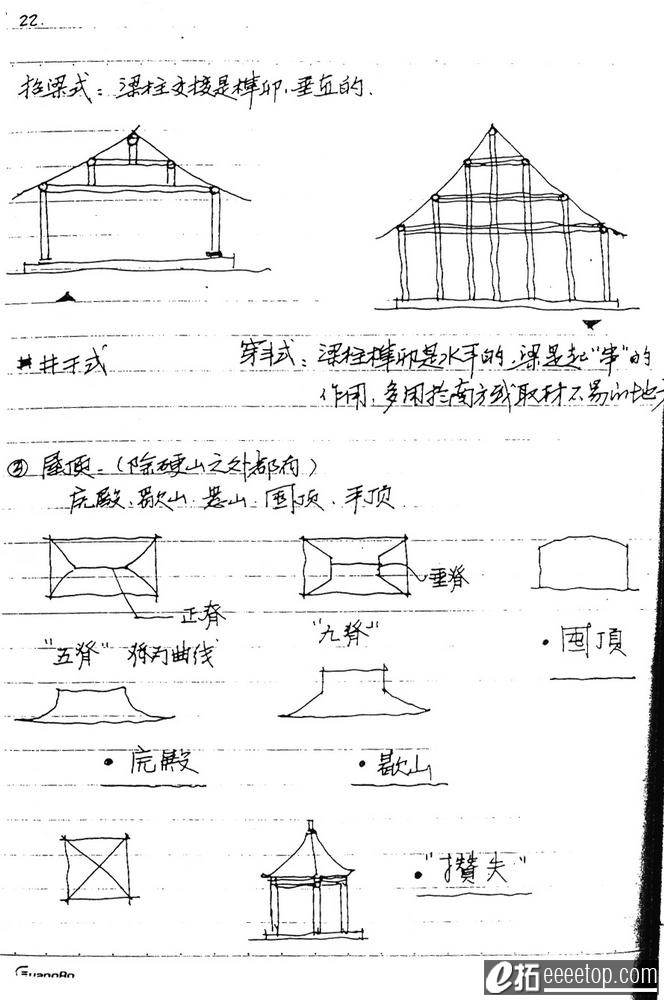 22.
抬梁式：梁柱交接是榫卯，垂直的．
井干式
穿斗式：梁柱榫卯是水平的，梁是起“串”的
作用，多用于南方或取材不易的地方
③ 屋顶．（除硬山之外都有）
庑殿、歇山、悬山、囤顶、平顶
垂脊
正脊
“五脊” 称为曲线
“九脊”
囤頂
庑殿
歇山
“攒尖”
GuangBo
e拓 eeeetop.com